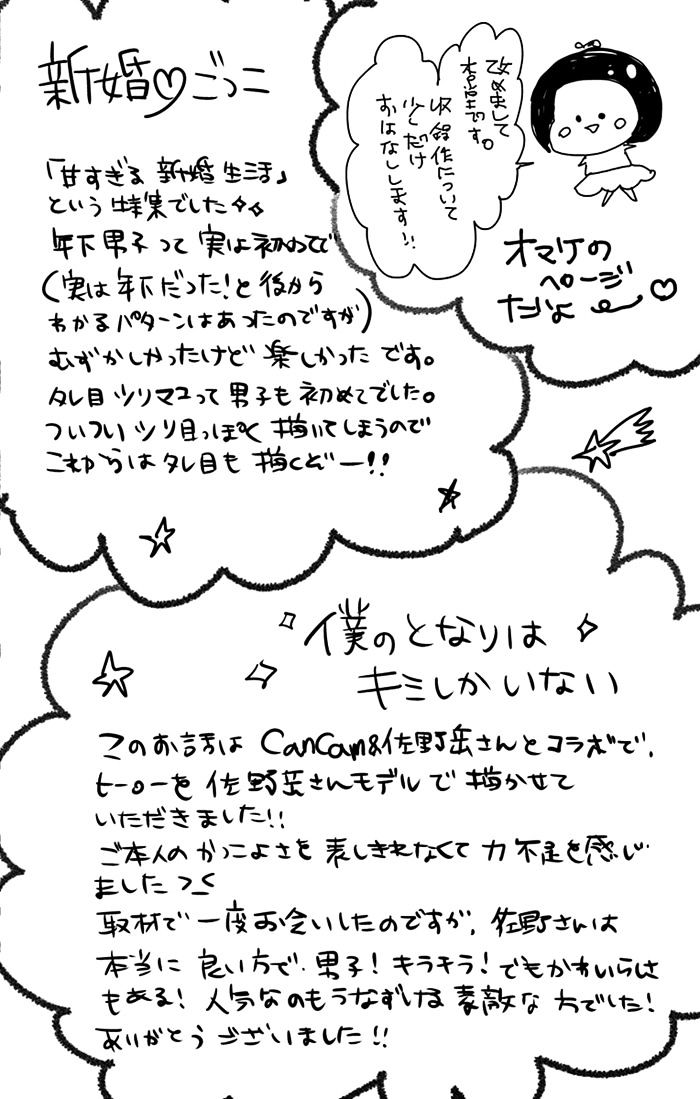 改めまして
杏堂です。
収録作について
少しだけ
おはなしします!!
オマケの
ページ
だよ
新婚♡ごっこ
「甘すぎる新婚生活」
という特集でした✧✧
年下男子って実は初めてで
(実は年下だった!と後から
わかるパターンはあったのですが)
むずかしかったけど楽しかったです。
タレ目ツリマユって男子も初めてでした。
ついついツリ目っぽく描いてしまうので
これからはタレ目も描くぞー!!
僕のとなりは
キミしかいない
このお話はCanCam&佐野岳さんとコラボで、
ヒーローを佐野岳さんモデルで描かせて
いただきました!!
ご本人のかっこよさを表しきれなくて力不足を感じ
ました
取材で一度お会いしたのですが、佐野さんは
本当に良い方で、男子!キラキラ!でもかわいらしさ
もある!人気なのもうなずける素敵な方でした!
ありがとうございました!!